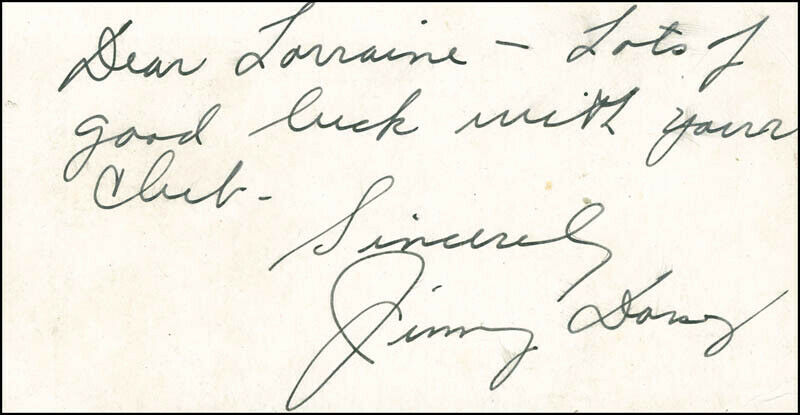 Dear Lorraine – Lots of
good luck with your
Club-
Sincerely
Jimmy Dorsey